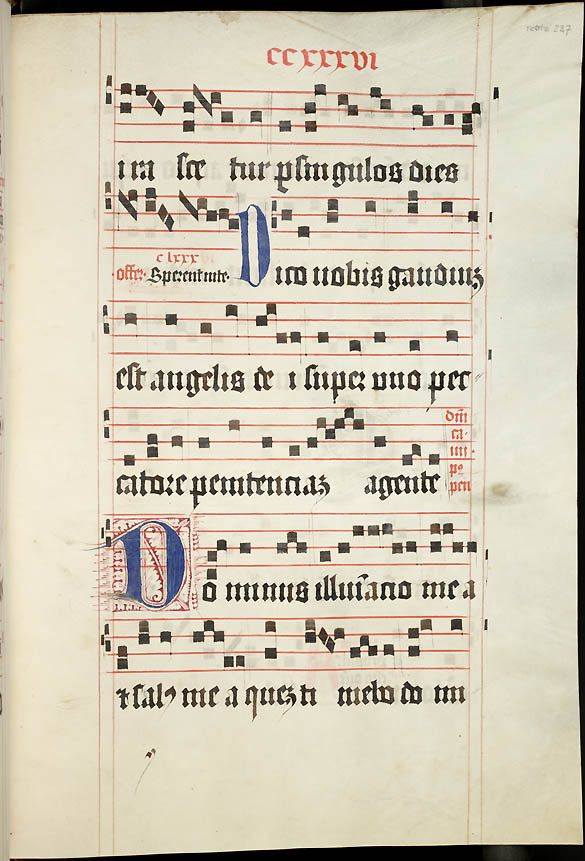 CCXXXVI
ira sce tur p singulos dies
clxxx
offer. Sperent in te. Dico vobis gaudiuz
est angelis de i super uno pec
catore penitenciaz agente
dm̄
ca.
iiii
pº
pen
Do minus illuīacio me a
⁊ sal⁹ me a quez ti mebo do mi